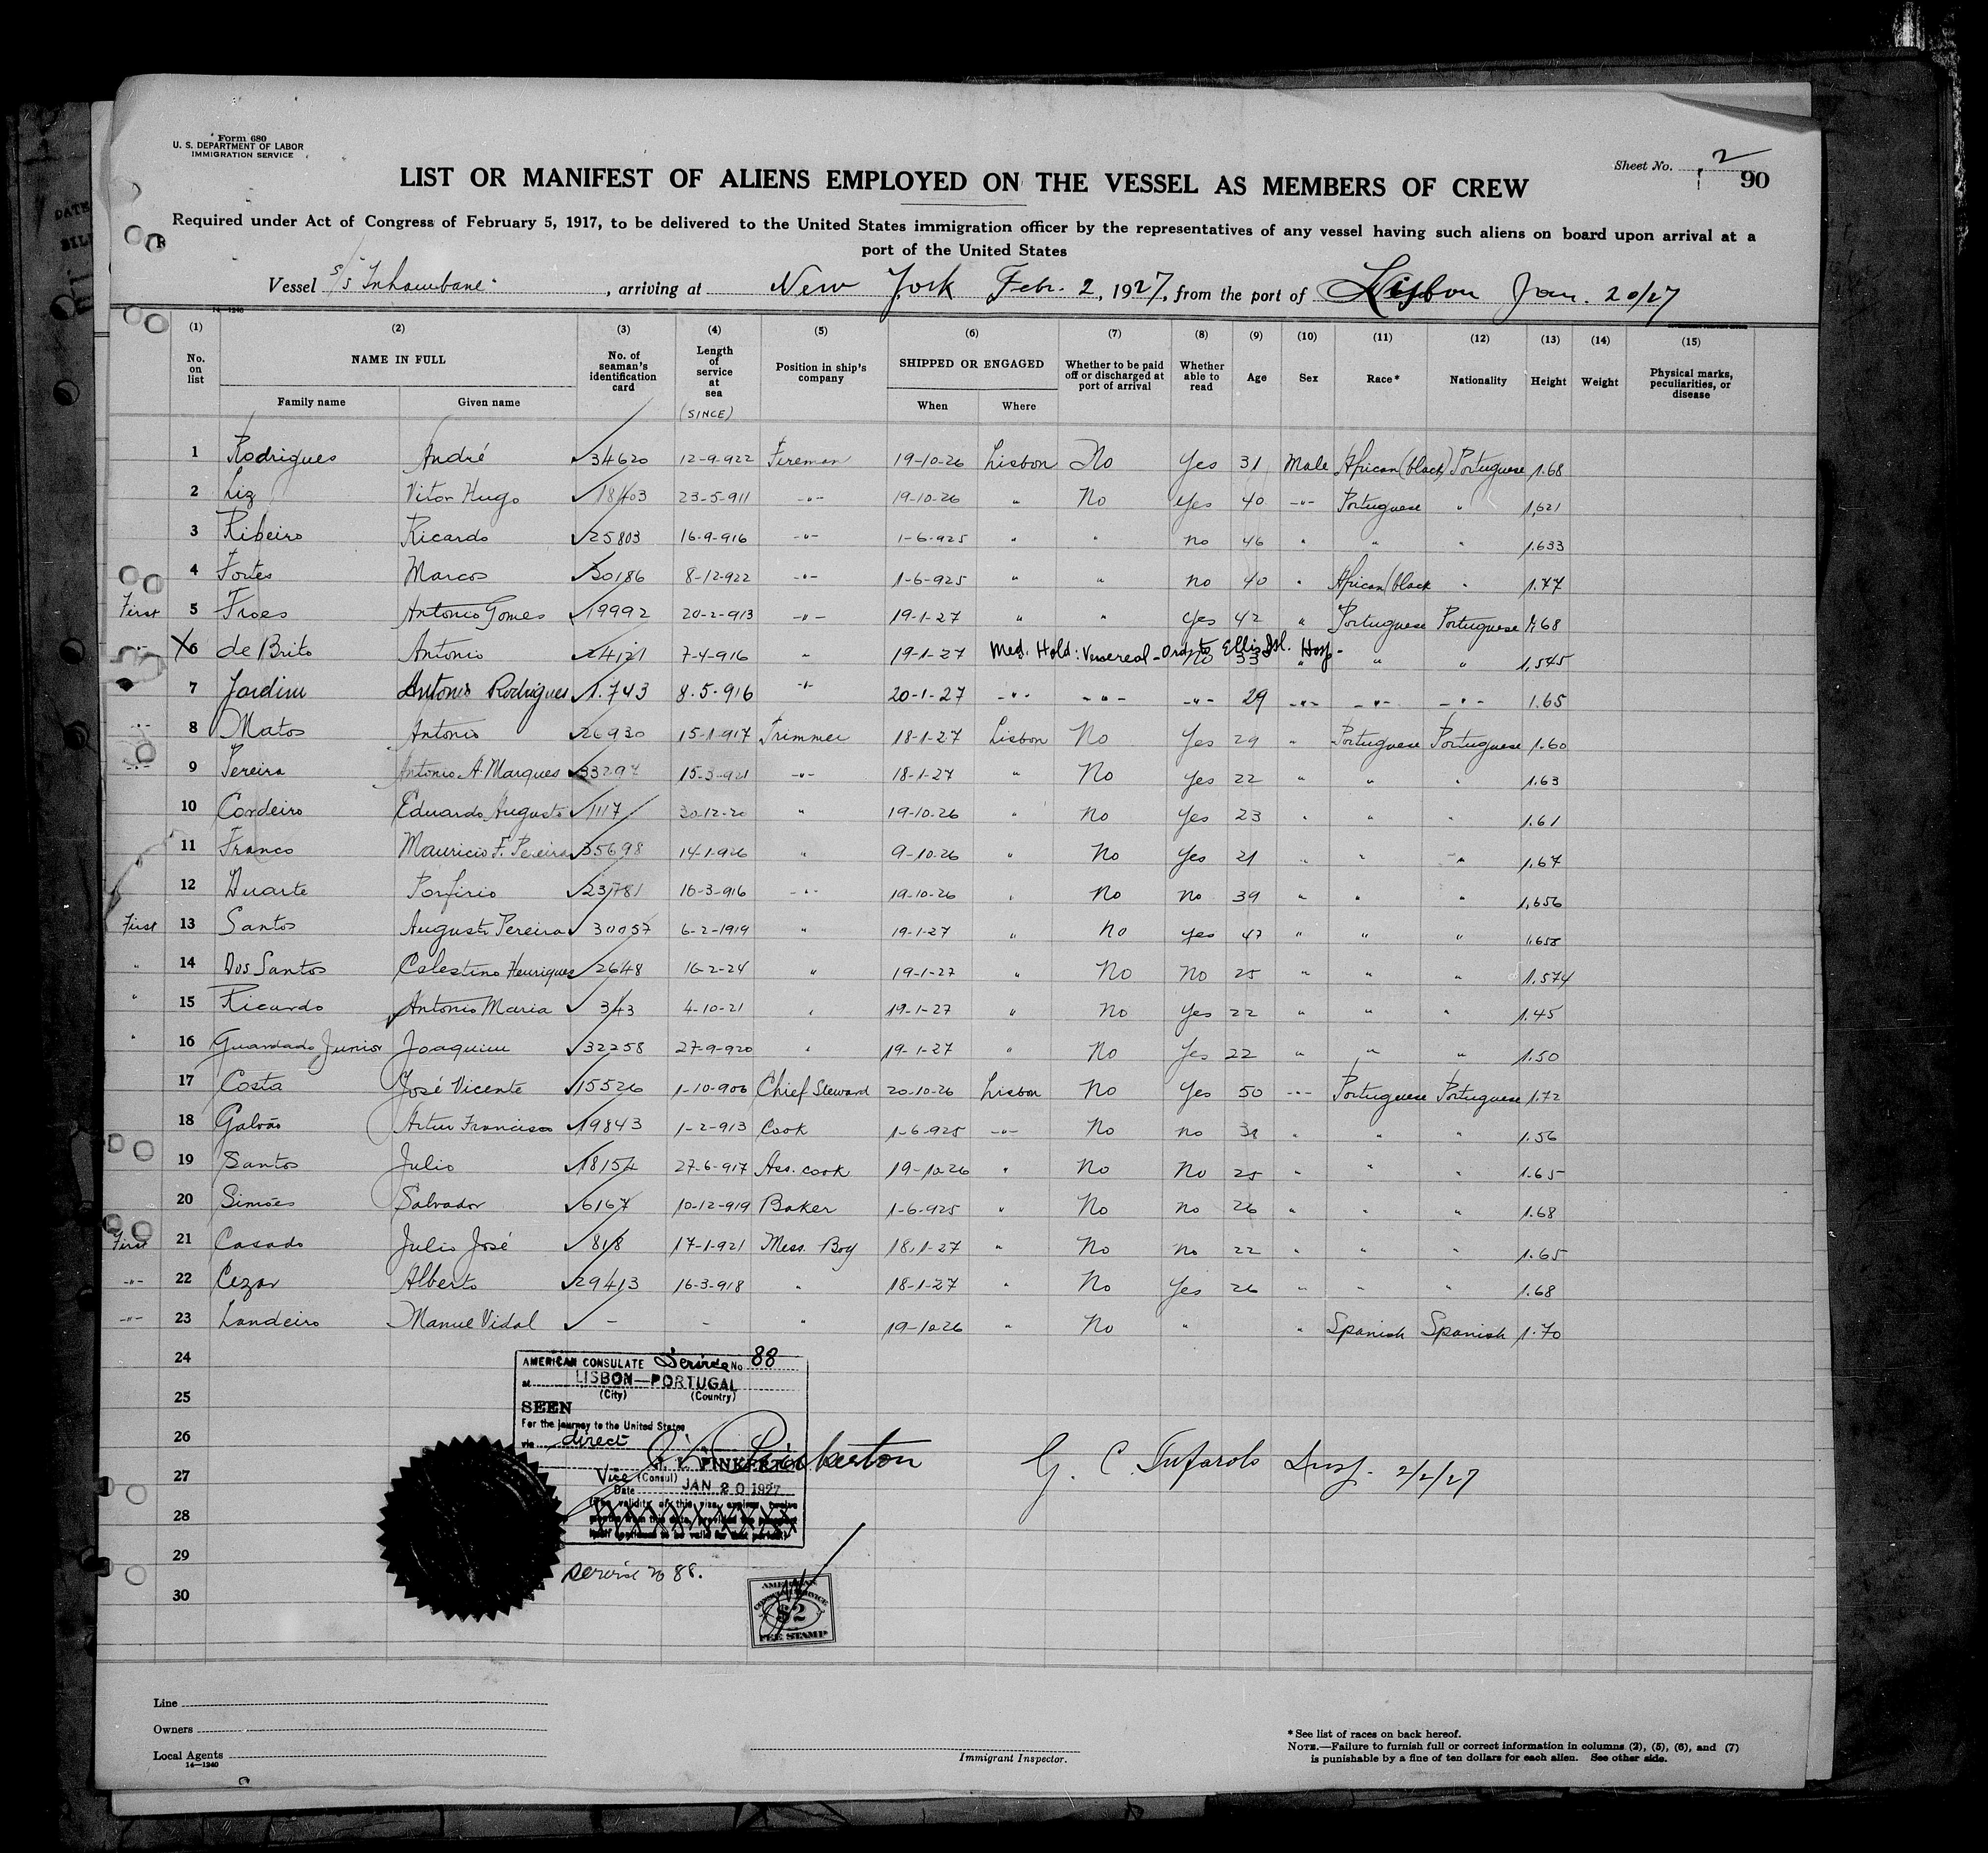 Form 680
U. S. DEPARTMENT OF LABOR
IMMIGRATION SERVICE
Sheet No. 2
90
LIST OR MANIFEST OF ALIENS EMPLOYED ON THE VESSEL AS MEMBERS OF CREW
Required under Act of Congress of February 5, 1917, to be delivered to the United States immigration officer by the representatives of any vessel having such aliens on board upon arrival at a
port of the United States
Vessel S/S Inhambane, arriving at New York Febr. 2, 1927, from the port of Lisbon Jan. 20/27
14-1240
(1) (2) (3) (4) (5) (6) (7) (8) (9) (10) (11) (12) (13) (14) (15)
No. on list NAME IN FULL Family name Given name No. of seaman's identification card Length of service at sea (SINCE) Position in ship's company SHIPPED OR ENGAGED When Where Whether to be paid off or discharged at port of arrival Whether able to read Age Sex Race* Nationality Height Weight Physical marks, peculiarities, or disease
1 Rodrigues André 34620 12-9-922 Fireman 19-10-26 Lisbon No Yes 31 Male African (black) Portuguese 1.68
2 Liz Vitor Hugo 18403 23-5-911 -"- 19-10-26 " No Yes 40 -"- Portuguese " 1,621
3 Ribeiro Ricardo 25803 16-9-916 -"- 1-6-925 " " no 46 " " " 1.633
4 Fortes Marcos 30186 8-12-922 -"- 1-6-925 " " no 40 " African (black " 1.77
First 5 Froes Antonio Gomes 19992 20-2-913 -"- 19-1-27 " " Yes 42 " Portuguese Portuguese 1.68
-"- X6 de Brito Antonio 24121 7-4-916 " 19-1-27 Med. Hold: Venereal - Ord. to Ellis Isl. Hosp- No 33 " " " 1,545
7 Jardim Antonio Rodrigues 1.743 8-5-916 -"- 20-1-27 -"- -"- -"- 29 -"- -"- -"- 1.65
-"- 8 Matos Antonio 26930 15-1-917 Trimmer 18-1-27 Lisbon No Yes 29 " Portuguese Portuguese 1.60
-"- 9 Pereira Antonio A. Marques 33297 15-3-921 -"- 18-1-27 " No Yes 22 " " " 1.63
10 Cordeiro Eduardo Augusto 1117 30-12-20 " 19-10-26 " No Yes 23 " " " 1.61
11 Franco Mauricio F. Pereira 35698 14-1-926 " 9-10-26 " No Yes 21 " " " 1.67
12 Duarte Porfirio 23781 16-3-916 -"- 19-10-26 " No no 39 " " " 1,656
First 13 Santos Augusto Pereira 30057 6-2-1919 " 19-1-27 " No yes 47 " " " 1.658
" 14 Dos Santos Celestino Henriques 2648 16-2-24 " 19-1-27 " No No 25 " " " 1.574
" 15 Ricardo Antonio Maria 343 4-10-21 " 19-1-27 " No Yes 22 " " " 1.45
" 16 Guardado Junior Joaquim 32258 27-9-920 " 19-1-27 " No Yes 22 " " " 1.50
17 Costa José Vicente 15526 1-10-906 Chief Steward 20-10-26 Lisbon No Yes 50 -"- Portuguese Portuguese 1.72
18 Galvão Artur Francisco 19843 1-2-913 Cook 1-6-925 -"- No no 38 " " " 1.56
19 Santos Julio 18154 27-6-917 Ass. cook 19-10-26 " No No 25 " " " 1.65
20 Simões Salvador 6167 10-12-919 Baker 1-6-925 " No no 26 " " " 1.68
First 21 Casado Julio José 818 17-1-921 Mess. Boy 18-1-27 " No no 22 " " " 1.65
-"- 22 Cezar Alberto 29413 16-3-918 " 18-1-27 " No Yes 26 " " " 1.68
-"- 23 Landeiro Manuel Vidal - - " 19-10-26 " No " " Spanish Spanish 1.70
24
25
26
27
28
29
30
AMERICAN CONSULATE Service No 88
at LISBON—PORTUGAL
(City) (Country)
SEEN
For the journey to the United States
via direct
Pinkerton
PINKERTON
Vice (Consul)
Date JAN 20 1927
G. C. Tufarolo Insp. 2/2/27
Service No 88.
AMERICAN
CONSULAR SERVICE
$2
FEE STAMP
Line
Owners
Local Agents
14—1240
Immigrant Inspector.
*See list of races on back hereof.
NOTE.—Failure to furnish full or correct information in columns (2), (5), (6), and (7)
is punishable by a fine of ten dollars for each alien. See other side.